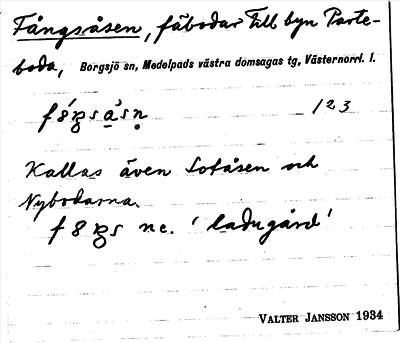 Fångsåsen, fäbodar till byn Parte-
boda, Borgsjö sn, Medelpads västra domsagas tg, Västernorrl. l.
123
Kallas även Sotåsen och
Nybodarna.
n. 'ladugård'
VALTER JANSSON 1934